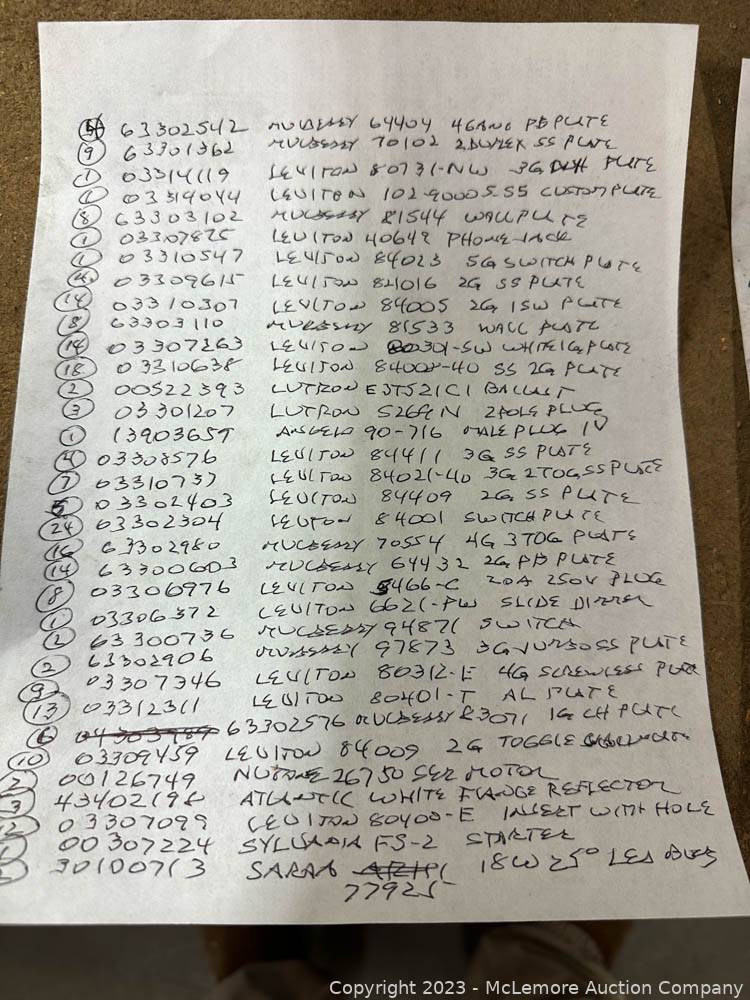 63302542 MULBERRY 64404 4GANG PB PLATE
9 63301362 MULBERRY 70102 2DUPLEX SS PLATE
1 03314119 LEVITON 80731-NW 3G PLATE
1 03314044 LEVITON 102-90005-SS CUSTOM PLATE
8 63303102 MULBERRY 81544 WALL PLATE
1 03307825 LEVITON 40649 PHONE JACK
1 03310547 LEVITON 84023 5G SWITCH PLATE
4 03309615 LEVITON 84016 2G SS PLATE
14 03310307 LEVITON 84005 2G 1SW PLATE
8 63303110 MULBERRY 81533 WALL PLATE
14 03307263 LEVITON 80301-SW WHITE 1G PLATE
18 03310638 LEVITON 84008-40 SS 2G PLATE
2 00522393 LUTRON E3T521C1 BALLAST
3 03301207 LUTRON 5269N 2POLE PLUG
1 13903659 ANGELO 90-716 MALE PLUG IV
4 03308576 LEVITON 84411 3G SS PLATE
7 03310737 LEVITON 84021-40 3G 2TOG SS PLATE
5 03302403 LEVITON 84409 2G SS PLATE
24 03302304 LEVITON 84001 SWITCH PLATE
16 63302980 MULBERRY 70554 4G 3TOG PLATE
14 63300603 MULBERRY 64432 2G PB PLATE
8 03306976 LEVITON 5466-C 20A 250V PLUG
1 03306372 LEVITON 6621-PW SLIDE DIMMER
2 63300736 MULBERRY 94871 SWITCH
2 63302906 MULBERRY 97873 3G JUMBO SS PLATE
9 03307346 LEVITON 80312-E 4G SCREWLESS PLATE
13 03312311 LEVITON 80401-T AL PLATE
6 63302576 MULBERRY 83071 1G CH PLATE
10 03309459 LEVITON 84009 2G TOGGLE
2 00126749 NUTONE 26750 SER MOTOR
3 43402198 ATLANTIC WHITE FLANGE REFLECTOR
03307099 LEVITON 80400-E INSERT WITH HOLE
00307224 SYLVANIA FS-2 STARTER
30100713 18W 25° LED
77925
Copyright 2023 - McLemore Auction Company